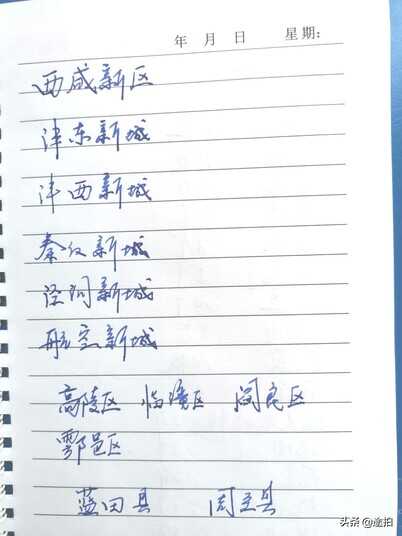 年 月 日 星期:
西咸新区
沣东新城
沣西新城
秦汉新城
泾河新城
航空新城
高陵区 临潼区 阎良区
鄠邑区
蓝田县 周至县
头条@鱼拍